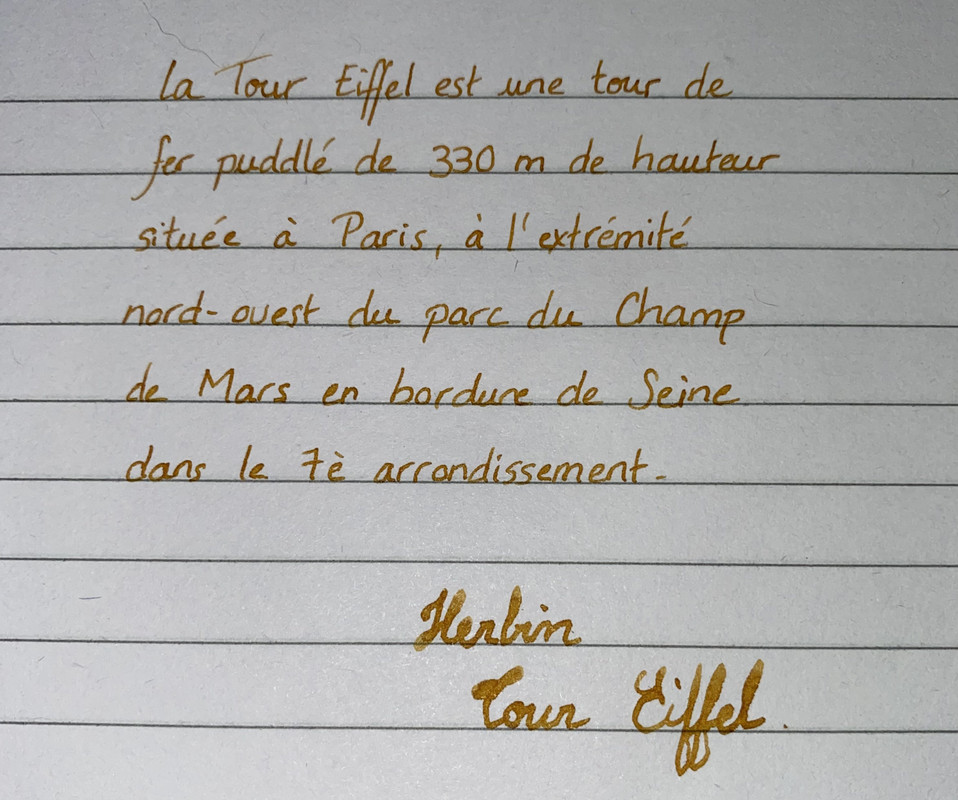 La Tour Eiffel est une tour de
fer puddlé de 330 m de hauteur
située à Paris, à l'extrémité
nord-ouest du parc du Champ
de Mars en bordure de Seine
dans le 7è arrondissement.
Herbin
Tour Eiffel.